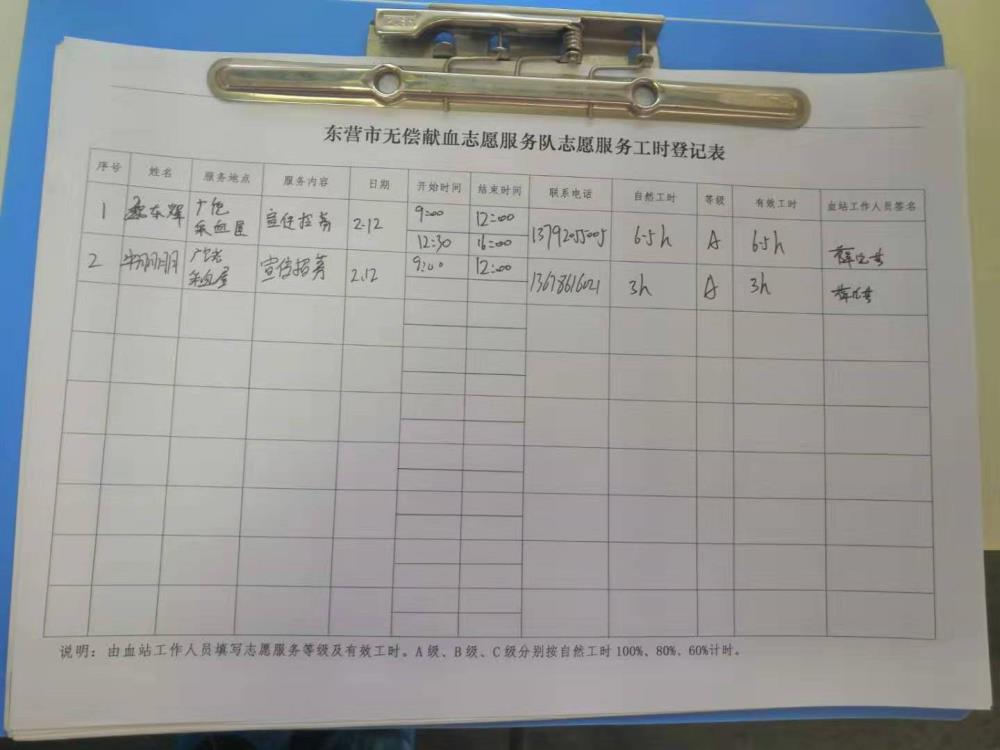 东营市无偿献血志愿服务队志愿服务工时登记表
序号 姓名 服务地点 服务内容 日期 开始时间 结束时间 联系电话 自然工时 等级 有效工时 血站工作人员签名
1 东辉 广饶 宣传招募 2.12 9:00 12:00 13792055005 6.5h A 6.5h
采血屋 12:30 16:00
2 牛朋朋 广饶 宣传招募 2.12 9:00 12:00 13678616021 3h A 3h
采血屋
说明：由血站工作人员填写志愿服务等级及有效工时。A级、B级、C级分别按自然工时100%、80%、60%计时。